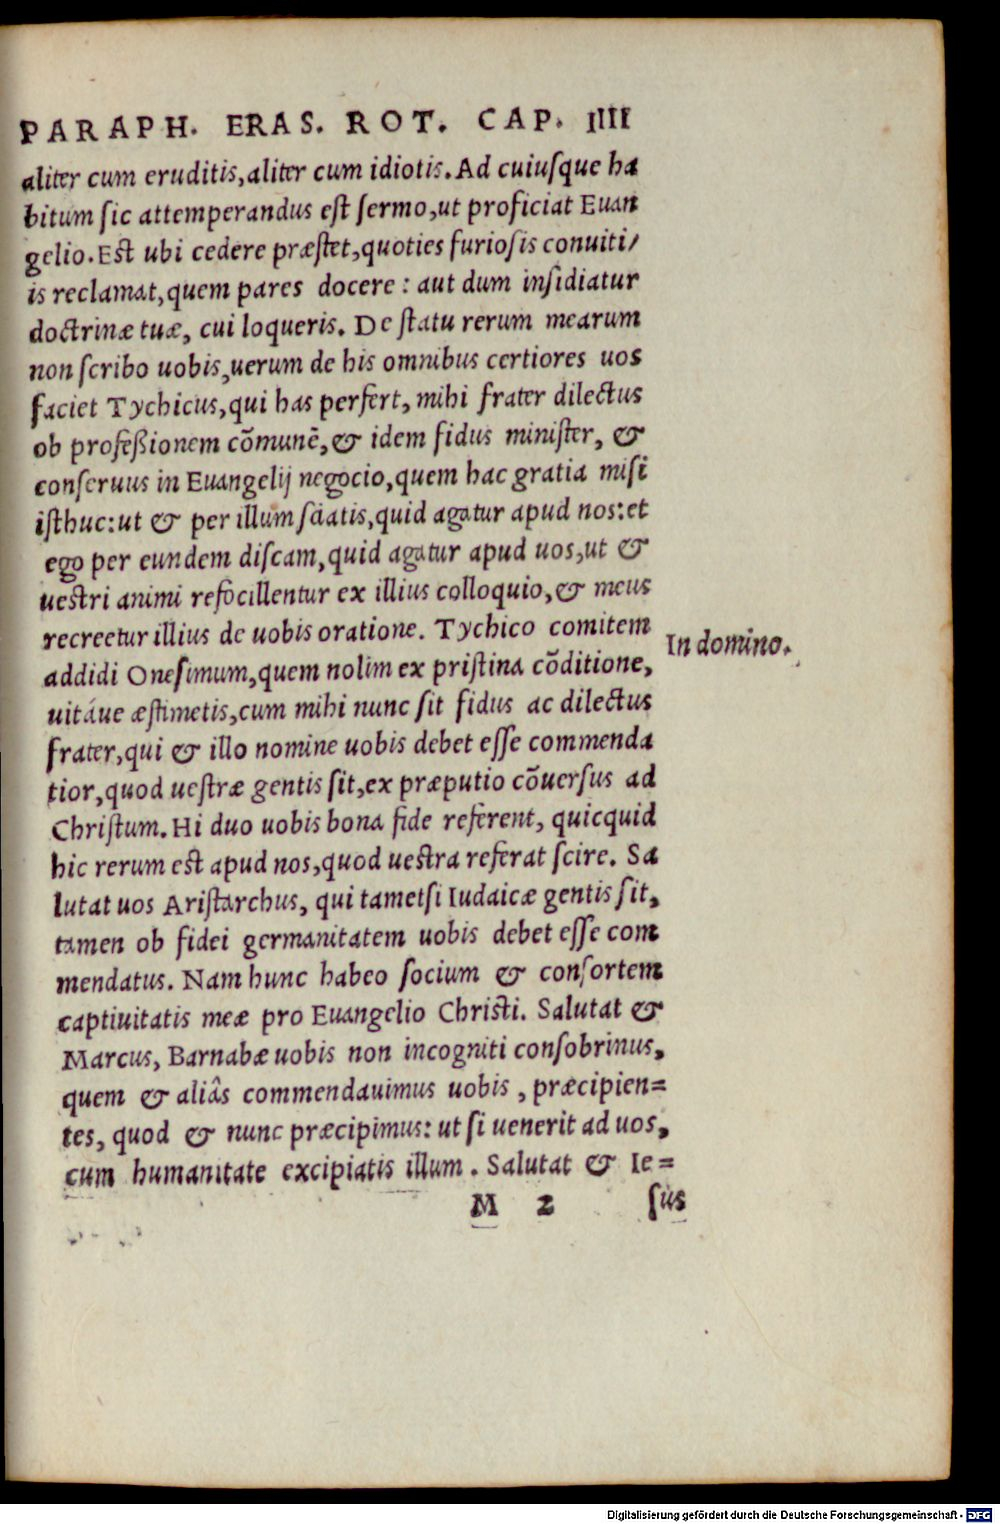 PARAPH. ERAS. ROT. CAP. IIII
aliter cum eruditis, aliter cum idiotis. Ad cuiusque ha
bitum sic attemperandus est sermo, ut proficiat Euan
gelio. Est ubi cedere præstet, quoties furiosis conuiti/
is reclamat, quem pares docere: aut dum insidiatur
doctrinæ tuæ, cui loqueris. De statu rerum mearum
non scribo uobis, uerum de his omnibus certiores uos
faciet Tychicus, qui has perfert, mihi frater dilectus
ob profeßionem cõmunẽ, & idem fidus minister, &
conseruus in Euangelij negocio, quem hac gratia misi
isthuc: ut & per illum sciatis, quid agatur apud nos: et
ego per eundem discam, quid agatur apud uos, ut &
uestri animi refocillentur ex illius colloquio, & meus
recreetur illius de uobis oratione. Tychico comitem
In domino.
addidi Onesimum, quem nolim ex pristina cõditione,
uitáue æstimetis, cum mihi nunc sit fidus ac dilectus
frater, qui & illo nomine uobis debet esse commenda
tior, quod uestræ gentis sit, ex præputio cõuersus ad
Christum. Hi duo uobis bona fide referent, quicquid
hic rerum est apud nos, quod uestra referat scire. Sa
lutat uos Aristarchus, qui tametsi Iudaicæ gentis sit,
tamen ob fidei germanitatem uobis debet esse com
mendatus. Nam hunc habeo socium & consortem
captiuitatis meæ pro Euangelio Christi. Salutat &
Marcus, Barnabæ uobis non incogniti consobrinus,
quem & aliâs commendauimus uobis, præcipien=
tes, quod & nunc præcipimus: ut si uenerit ad uos,
cum humanitate excipiatis illum. Salutat & Ie=
M 2 sus
Digitalisierung gefördert durch die Deutsche Forschungsgemeinschaft - DFG